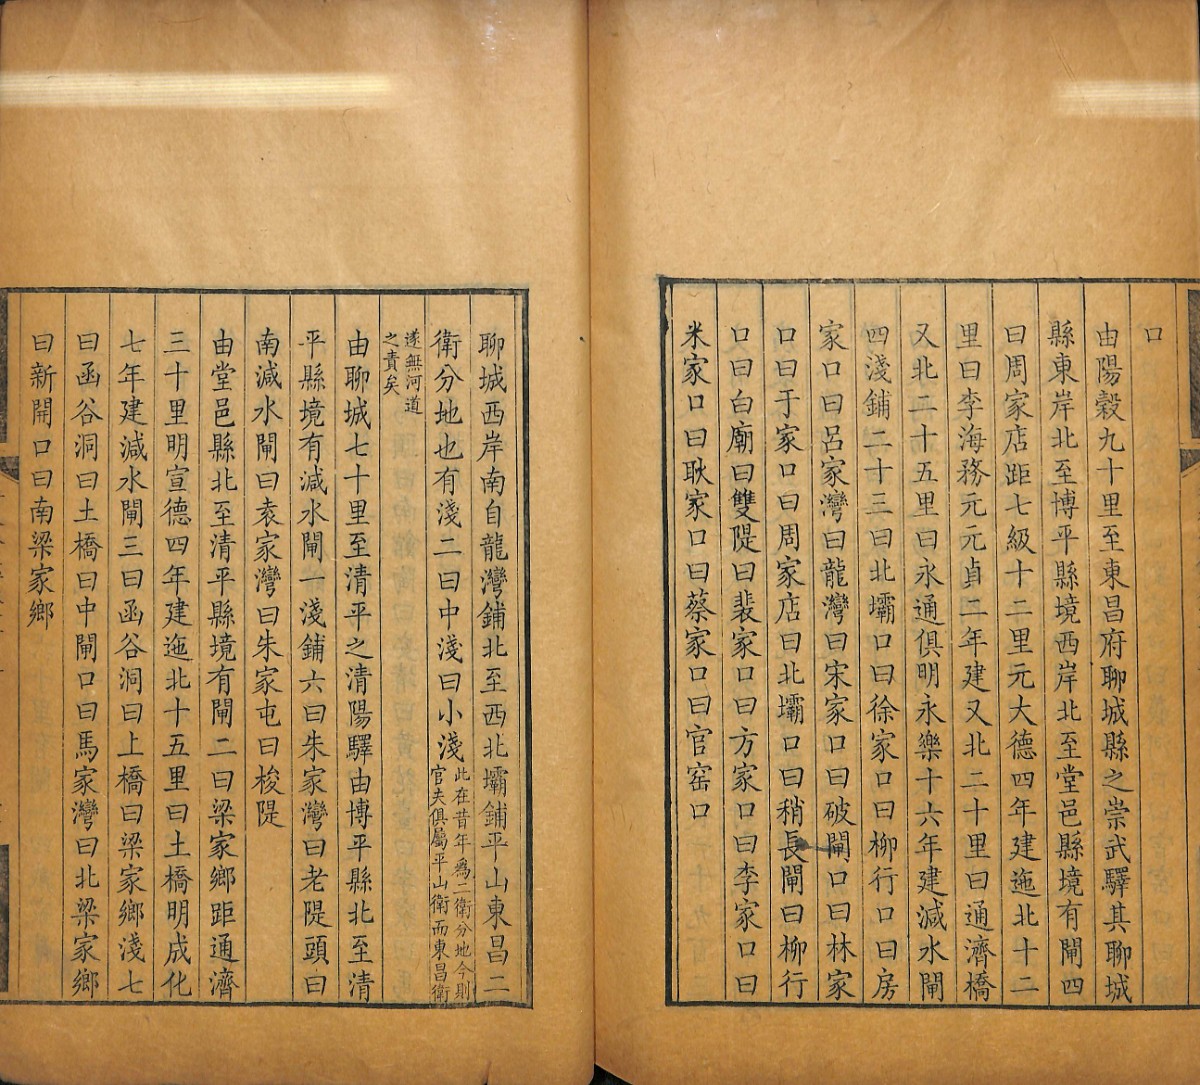 口
由陽穀九十里至東昌府聊城縣之崇武驛其聊城
縣東岸北至博平縣境西岸北至堂邑縣境有閘四
曰周家店距七級十二里元大德四年建迤北十二
里曰李海務元元貞二年建又北二十里曰通濟橋
又北二十五里曰永通俱明永樂十六年建減水閘
四淺鋪二十三曰北壩口曰徐家口曰柳行口曰房
家口曰呂家灣曰龍灣曰宋家口曰破閘口曰林家
口曰于家口曰周家店曰北壩口曰稍長閘曰柳行
口曰白廟曰雙隄曰裴家口曰方家口曰李家口曰
米家口曰耿家口曰蔡家口曰官窑口
聊城西岸南自龍灣鋪北至西北壩鋪平山東昌二
衛分地也有淺二曰中淺曰小淺此在昔年爲二衛分地今則
官夫俱屬平山衛而東昌衛
遂無河道
之責矣
由聊城七十里至清平之清陽驛由博平縣北至清
平縣境有減水閘一淺鋪六曰朱家灣曰老隄頭曰
南減水閘曰袁家灣曰朱家屯曰梭隄
由堂邑縣北至清平縣境有閘二曰梁家鄉距通濟
三十里明宣德四年建迤北十五里曰土橋明成化
七年建減水閘三曰函谷洞曰上橋曰梁家鄉淺七
曰函谷洞曰土橋曰中閘口曰馬家灣曰北梁家鄉
曰新開口曰南梁家鄉